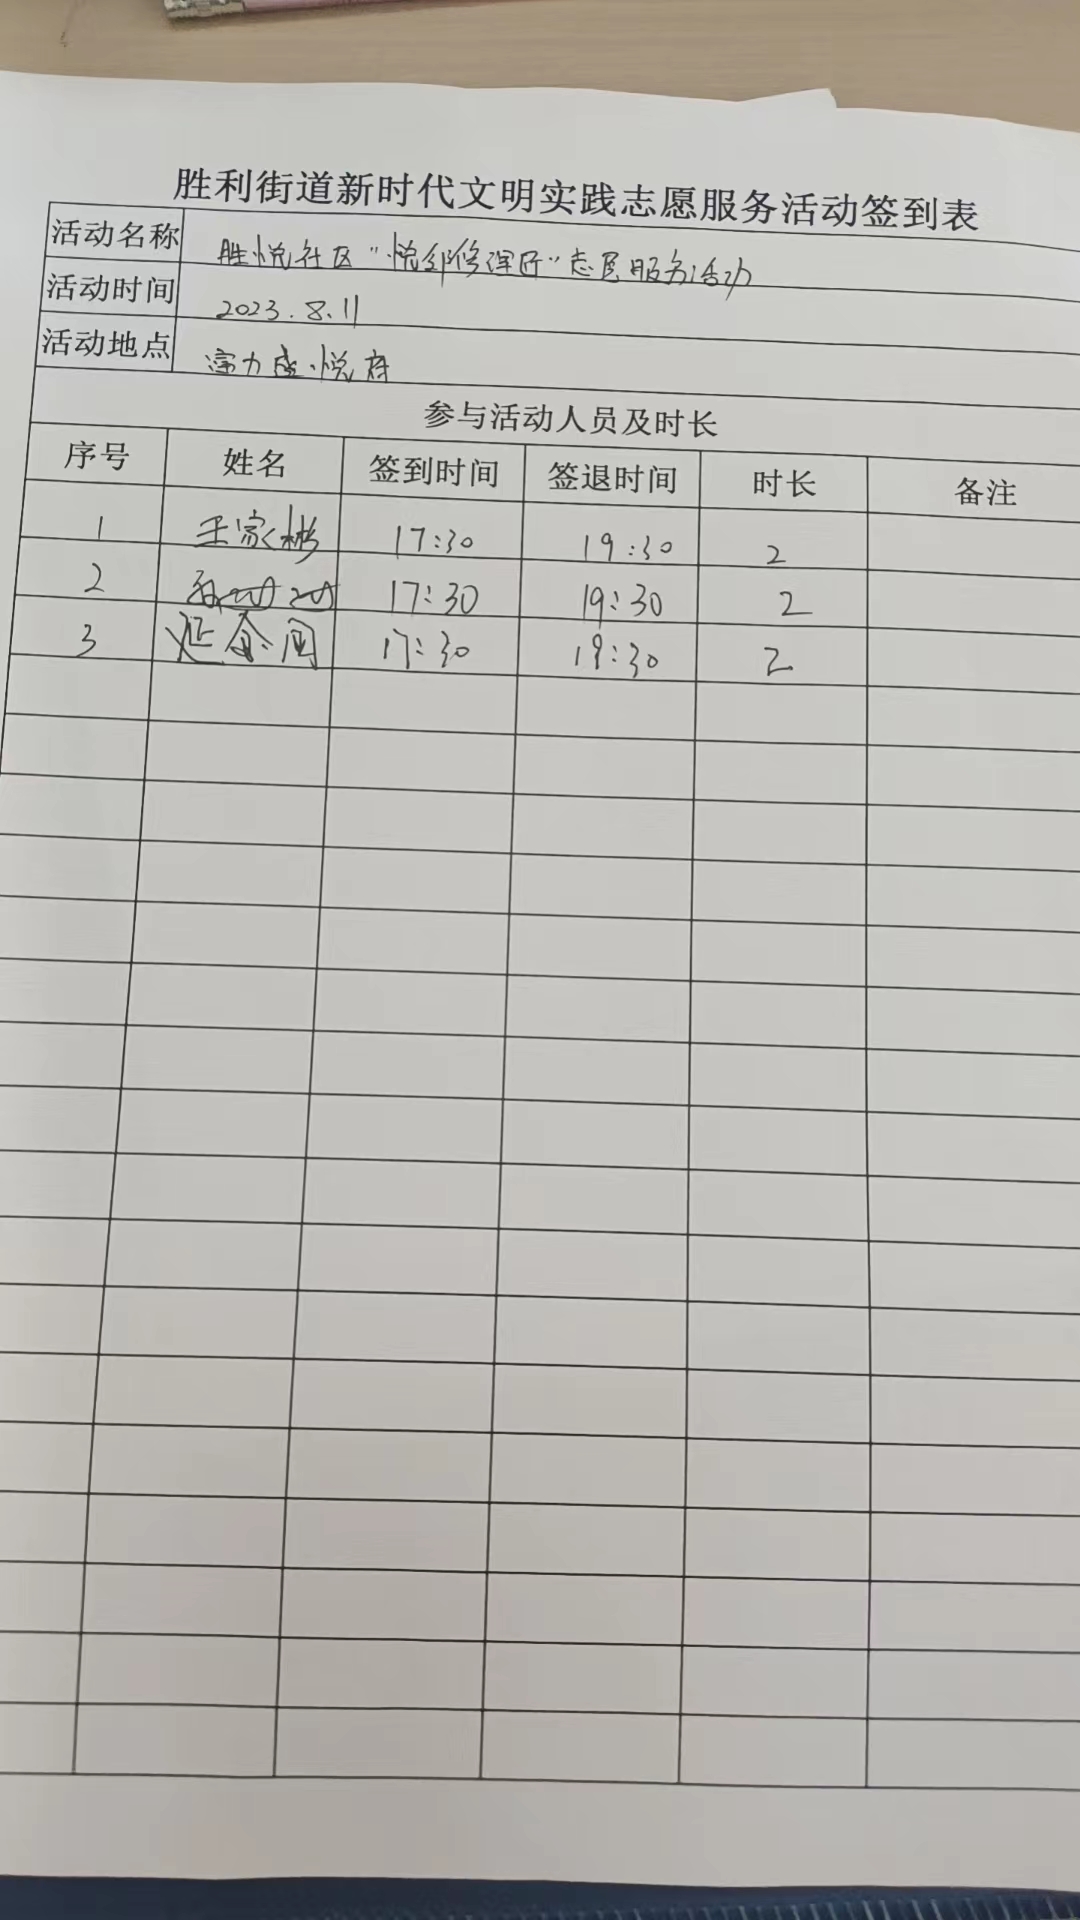 胜利街道新时代文明实践志愿服务活动签到表
活动名称 胜悦社区“悦邻修理匠”志愿服务活动
活动时间 2023.8.11
活动地点 富力盛悦府
参与活动人员及时长
序号 姓名 签到时间 签退时间 时长 备注
1 王家彬 17:30 19:30 2
2 17:30 19:30 2
3 17:30 19:30 2